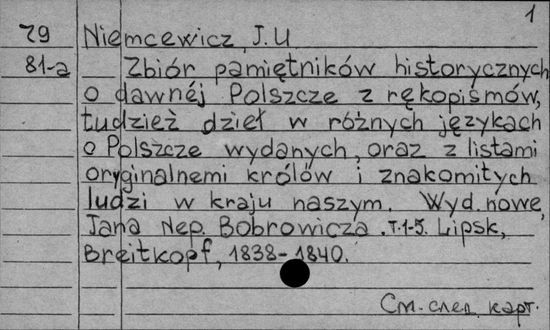 1
79 Niemcewicz, J.U
81-a Zbiór pamiętników historycznych
o dawnéj Polszcze z rękopismów,
tudzież dzieł w różnych językach
o Polszcze wydanych, oraz z listami
oryginalnemi królów i znakomitych
ludzi w kraju naszym. Wyd. nowe,
Jana Nep. Bobrowicza. T.1-5. Lipsk,
Breitkopf, 1838-1840.
См. след. карт.